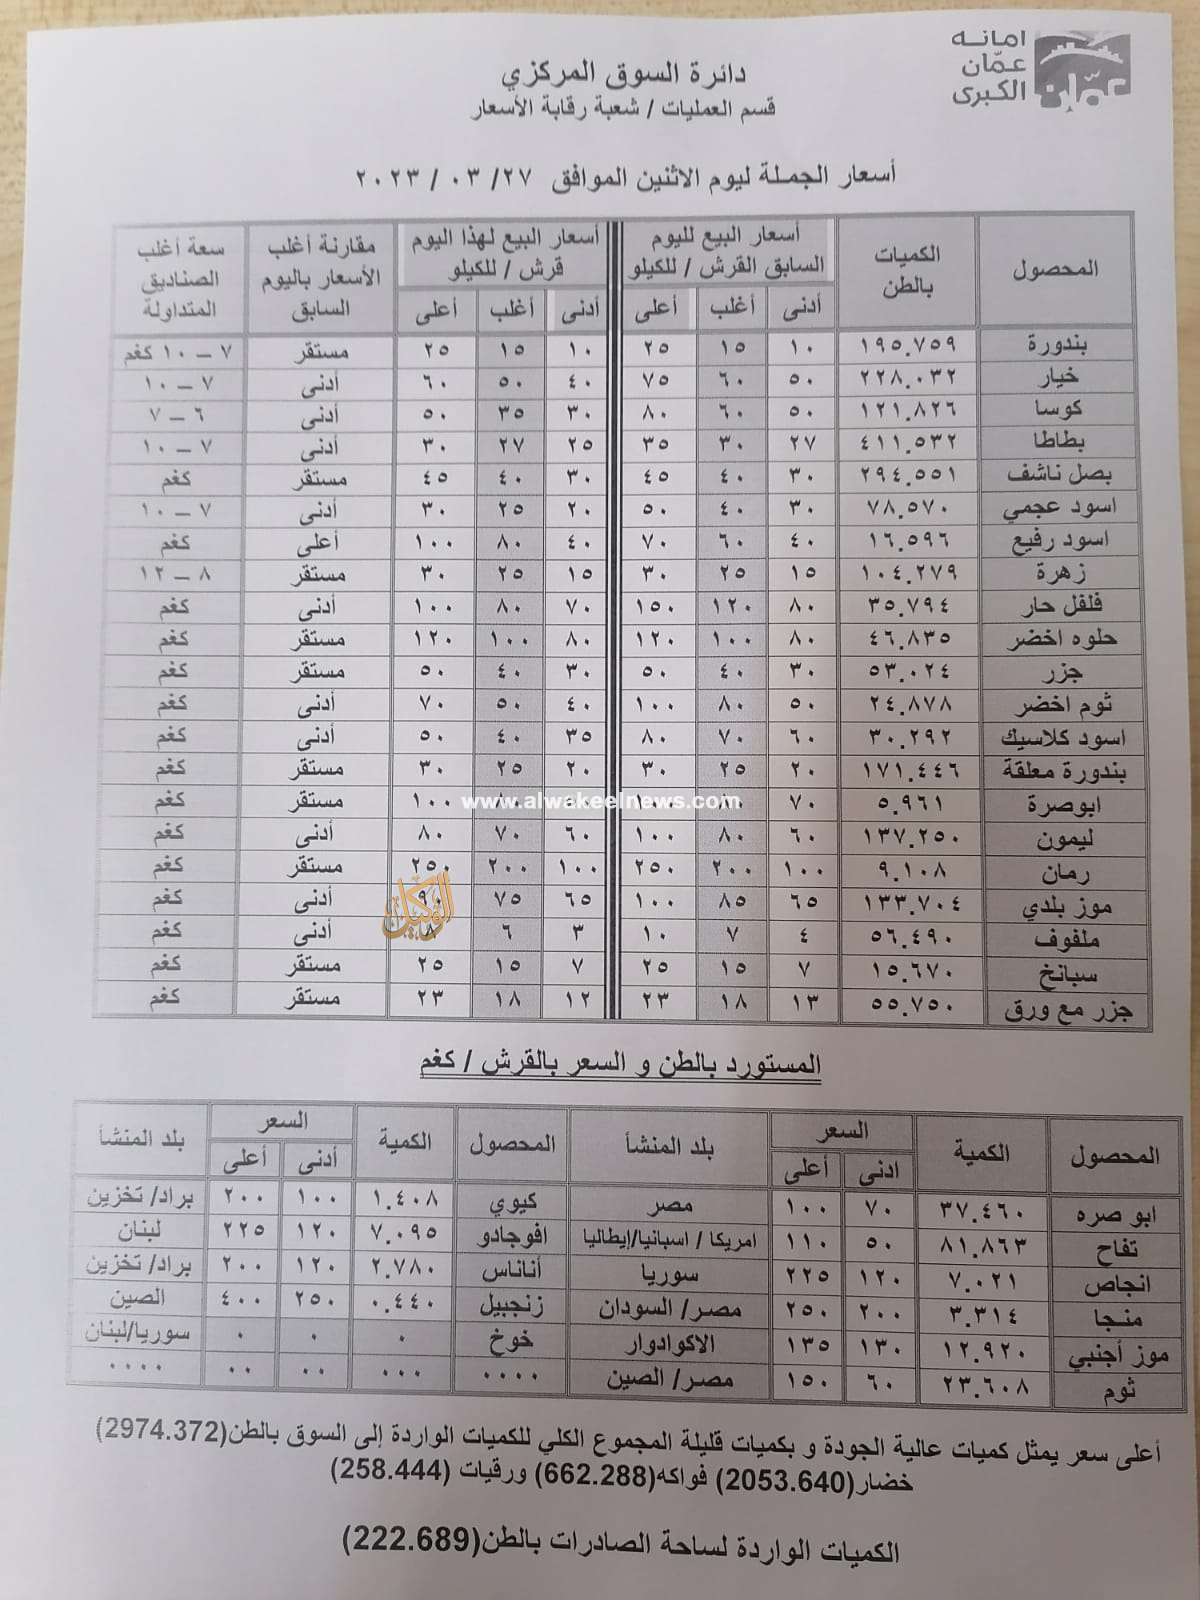 امانه
عمّان
الكبرى
عمّان
دائرة السوق المركزي
قسم العمليات / شعبة رقابة الأسعار
أسعار الجملة ليوم الاثنين الموافق ٢٧/ ٠٣ / ٢٠٢٣
المحصول الكميات بالطن أسعار البيع لليوم السابق القرش / للكيلو أسعار البيع لهذا اليوم قرش / للكيلو مقارنة أغلب الأسعار باليوم السابق سعة أغلب الصناديق المتداولة
أدنى أغلب أعلى أدنى أغلب أعلى
بندورة ١٩٥.٧٥٩ ١٠ ١٥ ٢٥ ١٠ ١٥ ٢٥ مستقر ٧ – ١٠ كغم
خيار ٢٢٨.٠٣٢ ٥٠ ٦٠ ٧٥ ٤٠ ٥٠ ٦٠ أدنى ٧ – ١٠
كوسا ١٢١.٨٢٦ ٥٠ ٦٠ ٨٠ ٣٠ ٣٥ ٥٠ أدنى ٦ – ٧
بطاطا ٤١١.٥٣٢ ٢٧ ٣٠ ٣٥ ٢٥ ٢٧ ٣٠ أدنى ٧ – ١٠
بصل ناشف ٢٩٤.٥٥١ ٣٠ ٤٠ ٤٥ ٣٠ ٤٠ ٤٥ مستقر كغم
اسود عجمي ٧٨.٥٧٠ ٣٠ ٤٠ ٥٠ ٢٠ ٢٥ ٣٠ أدنى ٧ – ١٠
اسود رفيع ١٦.٥٩٦ ٤٠ ٦٠ ٧٠ ٤٠ ٨٠ ١٠٠ أعلى كغم
زهرة ١٠٤.٢٧٩ ١٥ ٢٥ ٣٠ ١٥ ٢٥ ٣٠ مستقر ٨ – ١٢
فلفل حار ٣٥.٧٩٤ ٨٠ ١٢٠ ١٥٠ ٧٠ ٨٠ ١٠٠ أدنى كغم
حلوه اخضر ٤٦.٨٣٥ ٨٠ ١٠٠ ١٢٠ ٨٠ ١٠٠ ١٢٠ مستقر كغم
جزر ٥٣.٠٢٤ ٣٠ ٤٠ ٥٠ ٣٠ ٤٠ ٥٠ مستقر كغم
ثوم اخضر ٢٤.٨٧٨ ٥٠ ٨٠ ١٠٠ ٤٠ ٥٠ ٧٠ أدنى كغم
اسود كلاسيك ٣٠.٢٩٢ ٦٠ ٧٠ ٨٠ ٣٥ ٤٠ ٥٠ أدنى كغم
بندورة معلقة ١٧١.٤٤٦ ٢٠ ٢٥ ٣٠ ٢٠ ٢٥ ٣٠ مستقر كغم
ابوصرة ٥.٩٦١ ٧٠ ١٠٠ مستقر كغم
www.alwakeelnews.com
ليمون ١٣٧.٢٥٠ ٦٠ ٨٠ ١٠٠ ٦٠ ٧٠ ٨٠ أدنى كغم
رمان ٩.١٠٨ ١٠٠ ٢٠٠ ٢٥٠ ١٠٠ ٢٠٠ ٢٥٠ مستقر كغم
موز بلدي ١٣٣.٧٠٤ ٦٥ ٨٥ ١٠٠ ٦٥ ٧٥ ٩٠ أدنى كغم
الوكيل
ملفوف ٥٦.٤٩٠ ٤ ٧ ١٠ ٣ ٦ ٨ أدنى كغم
سبانخ ١٥.٦٧٠ ٧ ١٥ ٢٥ ٧ ١٥ ٢٥ مستقر كغم
جزر مع ورق ٥٥.٧٥٠ ١٣ ١٨ ٢٣ ١٢ ١٨ ٢٣ مستقر كغم
المستورد بالطن و السعر بالقرش / كغم
المحصول الكمية السعر بلد المنشأ المحصول الكمية السعر بلد المنشأ
ادنى أعلى أدنى أعلى
ابو صره ٣٧.٤٦٠ ٧٠ ١٠٠ مصر كيوي ١.٤٠٨ ١٠٠ ٢٠٠ براد/ تخزين
تفاح ٨١.٨٦٣ ٥٠ ١١٠ امريكا / اسبانيا/إيطاليا افوجادو ٧.٠٩٥ ١٢٠ ٢٢٥ لبنان
انجاص ٧.٠٢١ ١٢٠ ٢٢٥ سوريا أناناس ٢.٧٨٠ ١٢٠ ٢٠٠ براد/ تخزين
منجا ٣.٣١٤ ٢٠٠ ٢٥٠ مصر/ السودان زنجبيل ٠.٤٤٠ ٢٥٠ ٤٠٠ الصين
موز أجنبي ١٢.٩٢٠ ١٣٠ ١٣٥ الاكوادوار خوخ ٠ ٠ ٠ سوريا/لبنان
ثوم ٢٣.٦٠٨ ٦٠ ١٥٠ مصر/ الصين ٠٠٠٠ ٠٠٠ ٠٠ ٠٠ ٠٠٠٠
أعلى سعر يمثل كميات عالية الجودة و بكميات قليلة المجموع الكلي للكميات الواردة إلى السوق بالطن(2974.372)
خضار(2053.640) فواكه(662.288) ورقيات (258.444)
الكميات الواردة لساحة الصادرات بالطن(222.689)